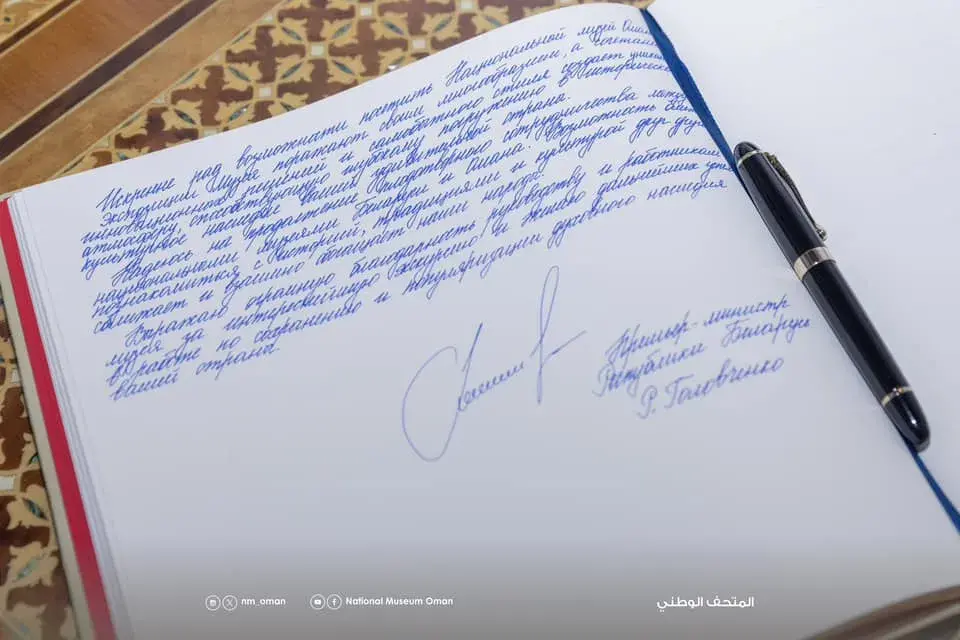 Искренне рад возможности посетить Национальный музей Омана
Экспозиции музея поражают своим многообразием, а сочетание
инновационных решений и самобытного стиля создает
атмосферу, способствующую глубокому погружению в историческое
культурное наследие вашей удивительной страны.
Надеюсь на продолжение плодотворного сотрудничества между
национальными музеями Беларуси и Омана. Возможность
познакомиться с историей, традициями и культурой друг друга
сближает и взаимно обогащает наши народы.
Выражаю огромную благодарность руководству и работникам
музея за интереснейшую экскурсию и желаю дальнейших
в работе по сохранению и популяризации духовного наследия
вашей страны.
Премьер-министр
Республики Беларусь
Р. Головченко
nm_oman National Museum Oman المتحف الوطني